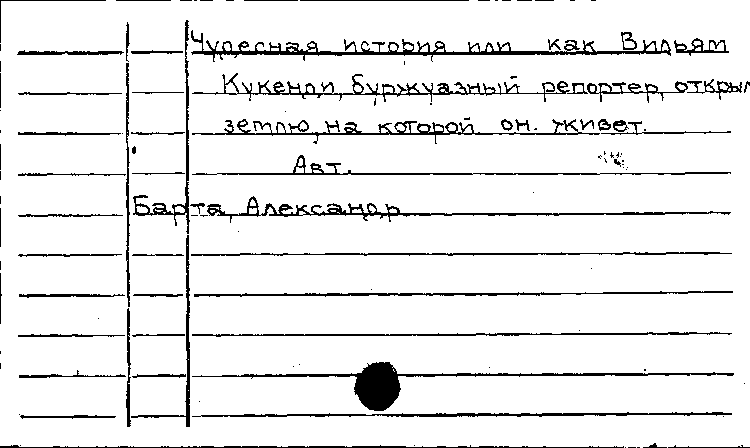 Чудесная история или как Вильям
Кукенди, буржуазный репортер, открыл
землю, на которой он. живет.
Авт.
Барта, Александр